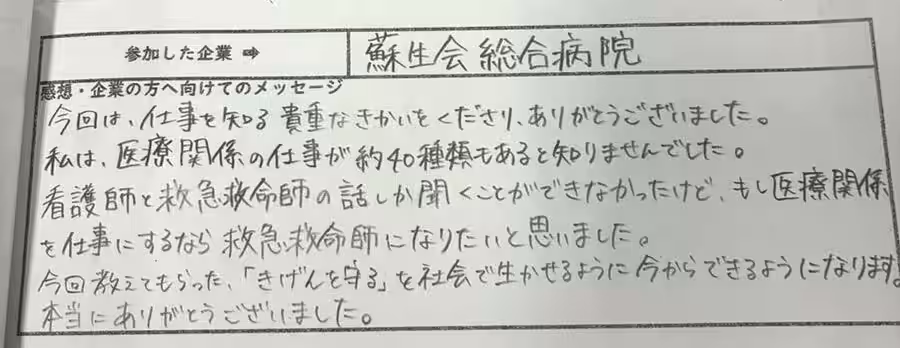 参加した企業 ⇒ 蘇生会総合病院
感想・企業の方へ向けてのメッセージ
今回は、仕事を知る貴重なきかいをくださり、ありがとうございました。
私は、医療関係の仕事が約40種類もあると知りませんでした。
看護師と救急救命師の話しか聞くことができなかったけど、もし医療関係
を仕事にするなら救急救命師になりたいと思いました。
今回教えてもらった、「きげんを守る」を社会で生かせるように今からできるようになります。
本当にありがとうございました。